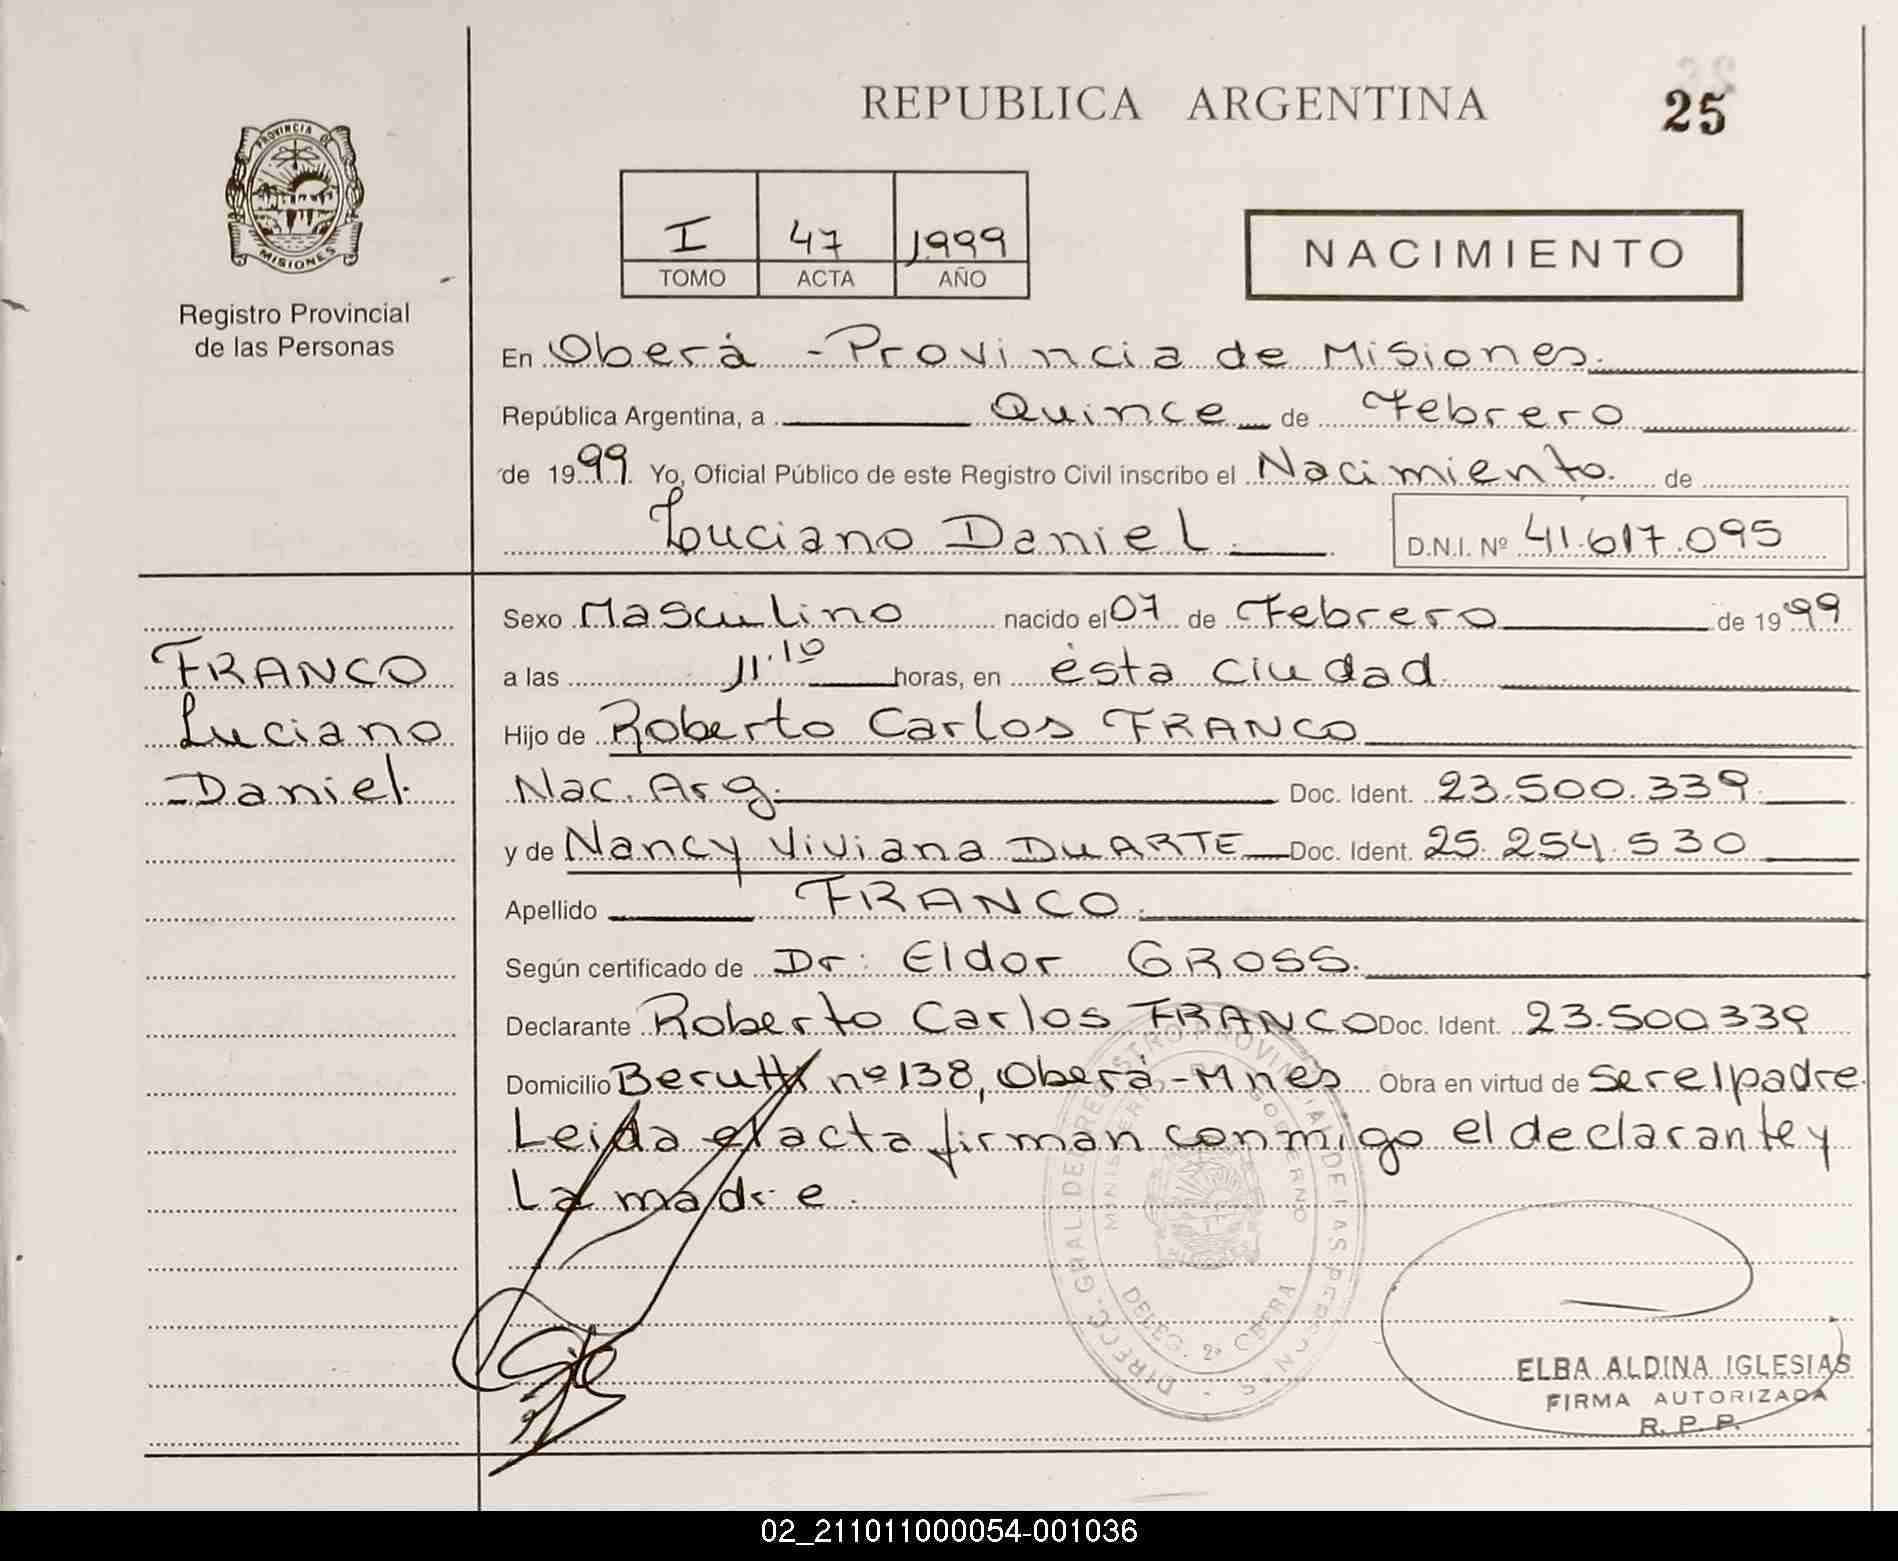 REPUBLICA ARGENTINA
25
PROVINCIA DE
MISIONES
Registro Provincial
de las Personas
I 47 1999
TOMO ACTA AÑO
NACIMIENTO
En Oberá - Provincia de Misiones.
República Argentina, a Quince de Febrero
de 1999. Yo, Oficial Público de este Registro Civil inscribo el Nacimiento. de
Luciano Daniel. D.N.I. Nº 41.617.095
Sexo Masculino nacido el 07 de Febrero de 1999
a las 11.10 horas, en ésta Ciudad.
Hijo de Roberto Carlos FRANCO
Nac. Arg. Doc. Ident. 23.500.339.
y de Nancy Viviana DUARTE Doc. Ident. 25.254.530
Apellido FRANCO.
Según certificado de Dr: Eldor GROSS.
Declarante Roberto Carlos FRANCO Doc. Ident. 23.500339
Domicilio Berutti nº 138, Oberá - Mnes Obra en virtud de ser el padre.
Leida el acta firman conmigo el declarante y
La madre.
FRANCO
Luciano
Daniel.
DIRECC. GRAL. DEL REGISTRO PROVINCIAL DE LAS PERSONAS
GOBIERNO
DELEG. 2ª OBERA
ELBA ALDINA IGLESIAS
FIRMA AUTORIZADA
R. P. P.
02_211011000054-001036